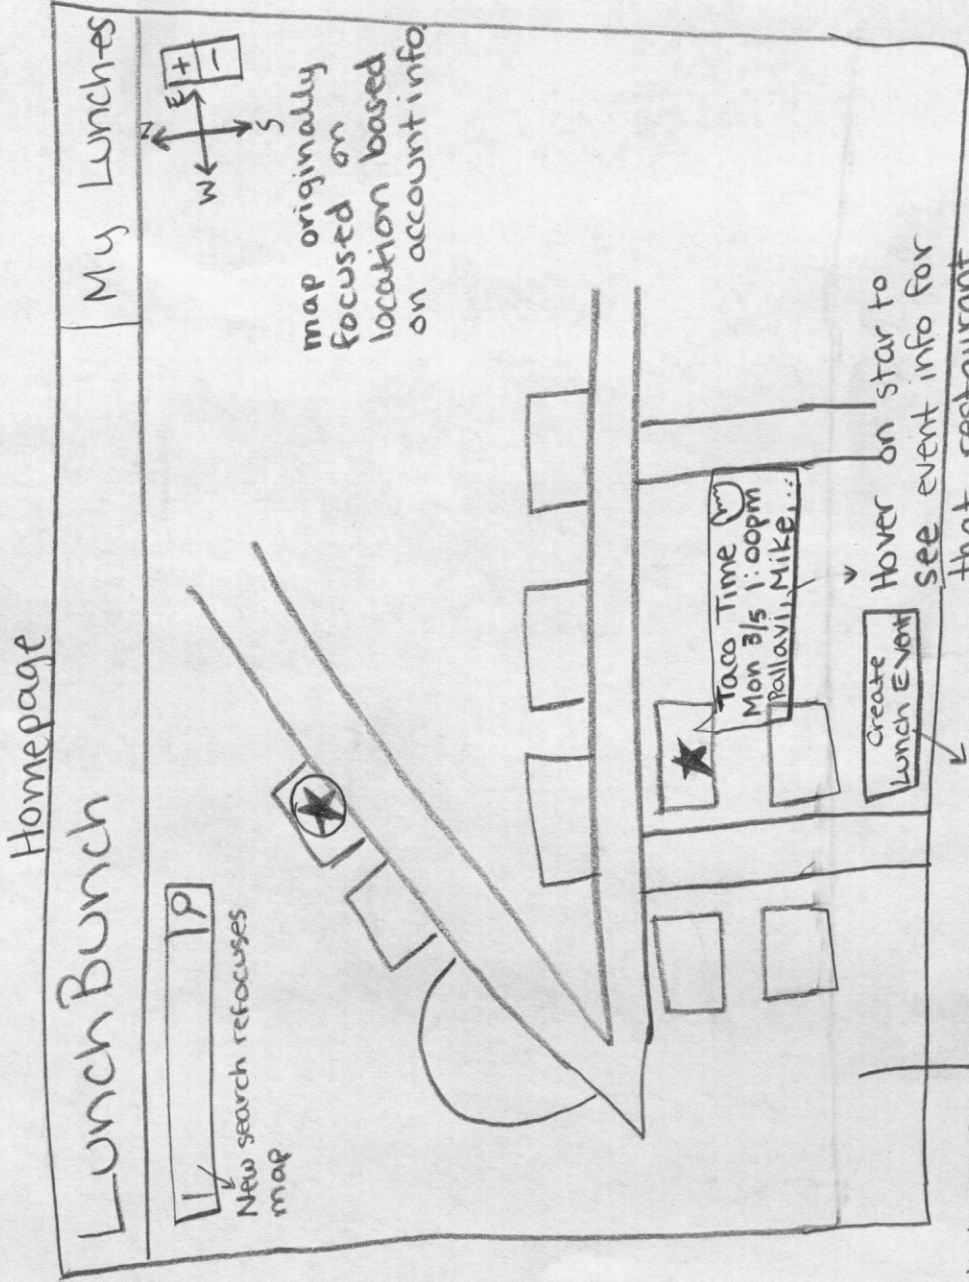 Homepage
LunchBunch
My Lunches
New search refocuses
map
N
W
E
S
+
-
map originally
focused on
location based
on account info.
Taco Time
Mon 3/5 1:00pm
Pallavi, Mike,...
Create
Lunch Event
Hover on star to
see event info for
that restaurant